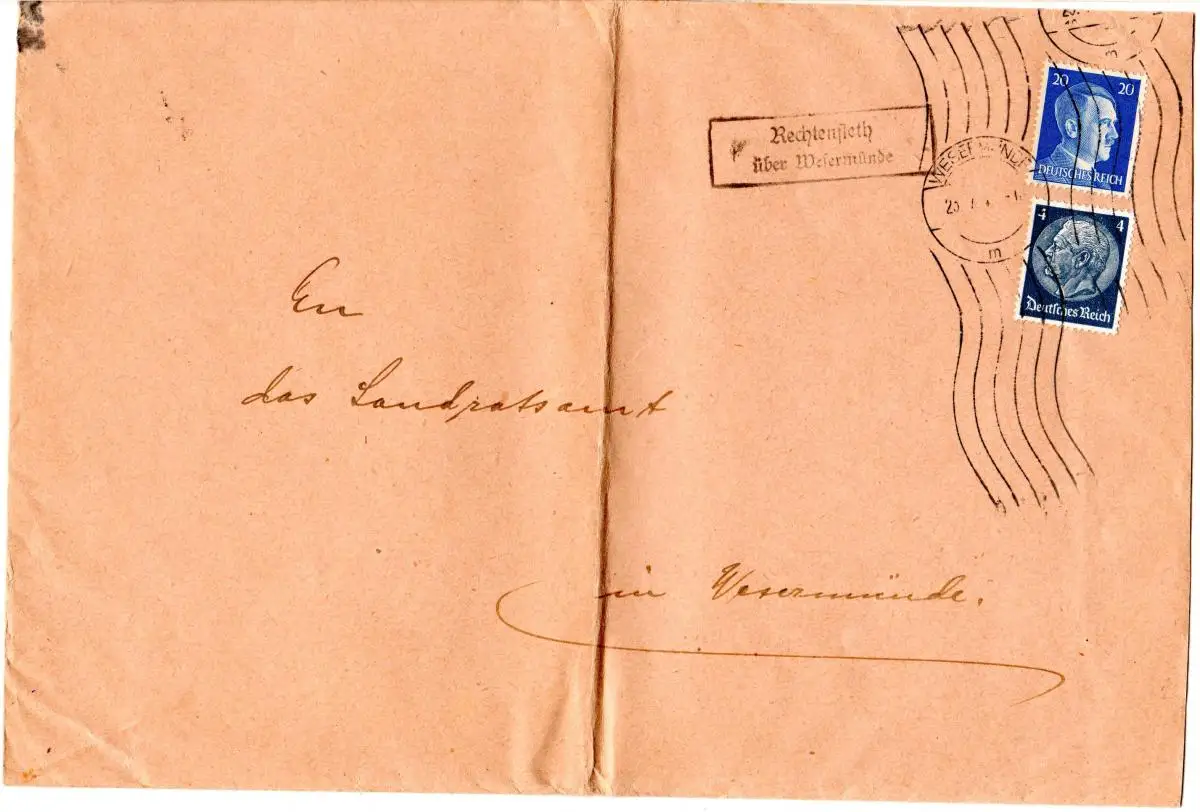 Rechtenfleth
über Wesermünde
WESERMÜNDE
m
20 20
DEUTSCHES REICH
4 4
Deutsches Reich
An
das Landratsamt
in Wesermünde.